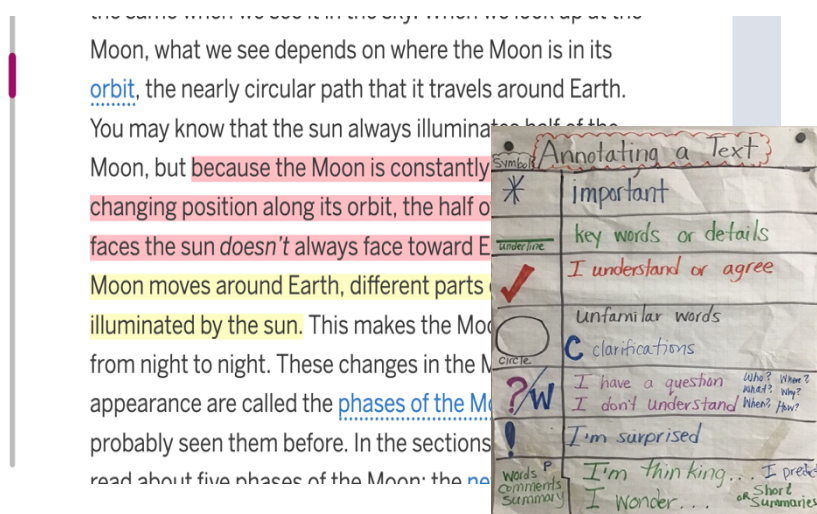 Moon, what we see depends on where the Moon is in its
orbit, the nearly circular path that it travels around Earth.
You may know that the sun always illuminates half of the
Moon, but because the Moon is constantly
changing position along its orbit, the half o
faces the sun doesn't always face toward E
Moon moves around Earth, different parts
illuminated by the sun. This makes the Moo
from night to night. These changes in the M
appearance are called the phases of the Mo
probably seen them before. In the sections
read about five phases of the Moon: the ne
Symbol Annotating a Text
* important
underline key words or details
I understand or agree
circle unfamilar words
C clarifications
?/W I have a question
I don't understand
Who? Where?
What? Why?
When? How?
! I'm surprised
Words P
comments
summary
I'm thinking... I predict
I wonder... or Short
Summaries